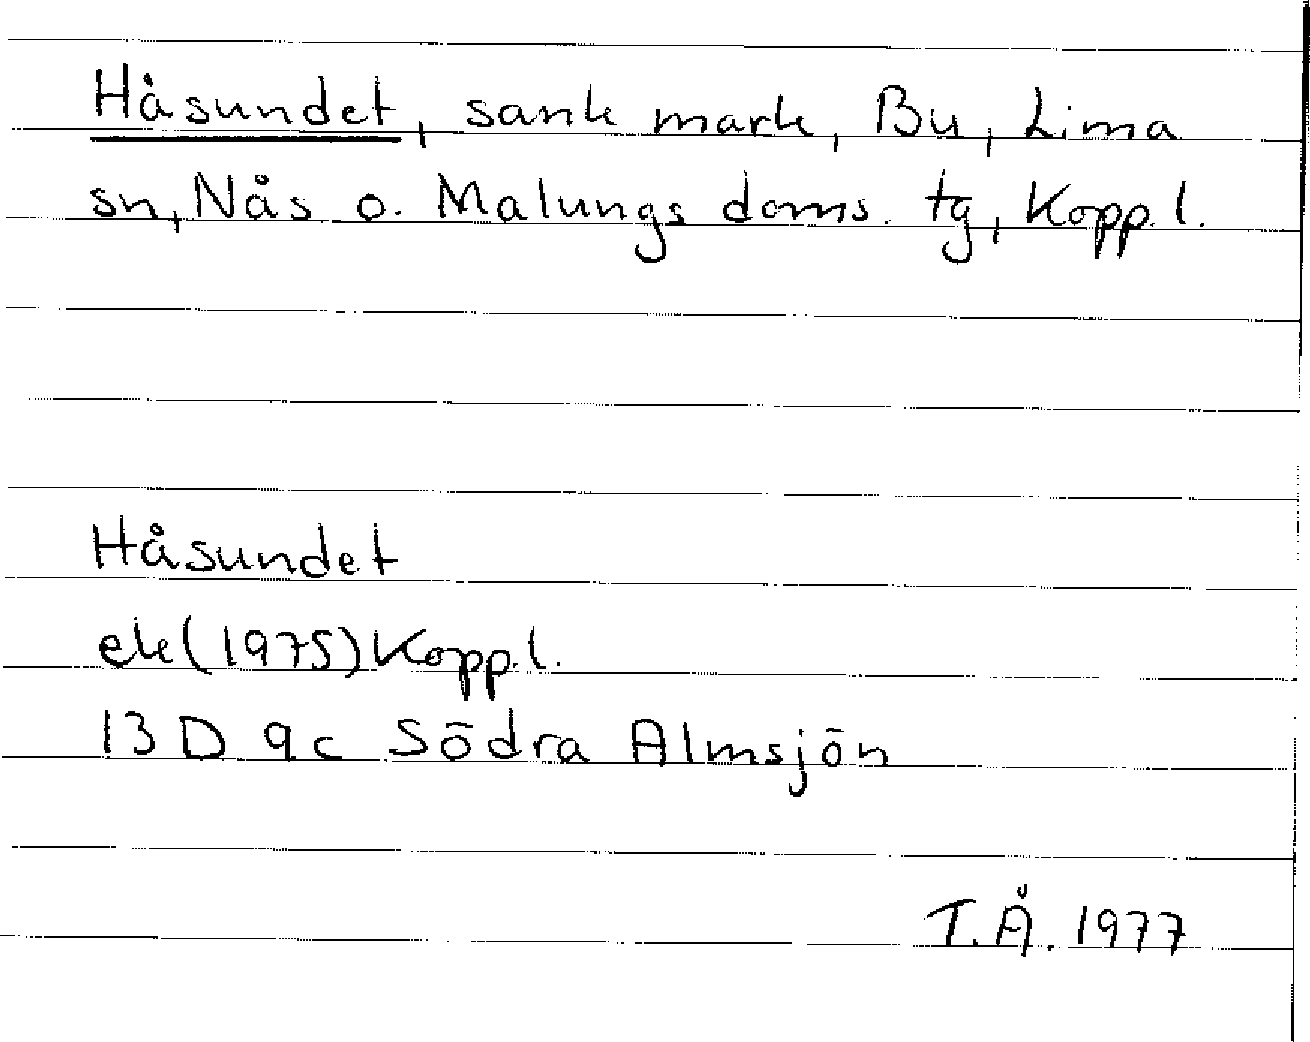 Håsundet, sank mark, By, Lima
sn, Nås o. Malungs doms. tg, Kopp. l.
Håsundet
ek (1975) Kopp. l.
13 D 9c Södra Almsjön
T. Å. 1977